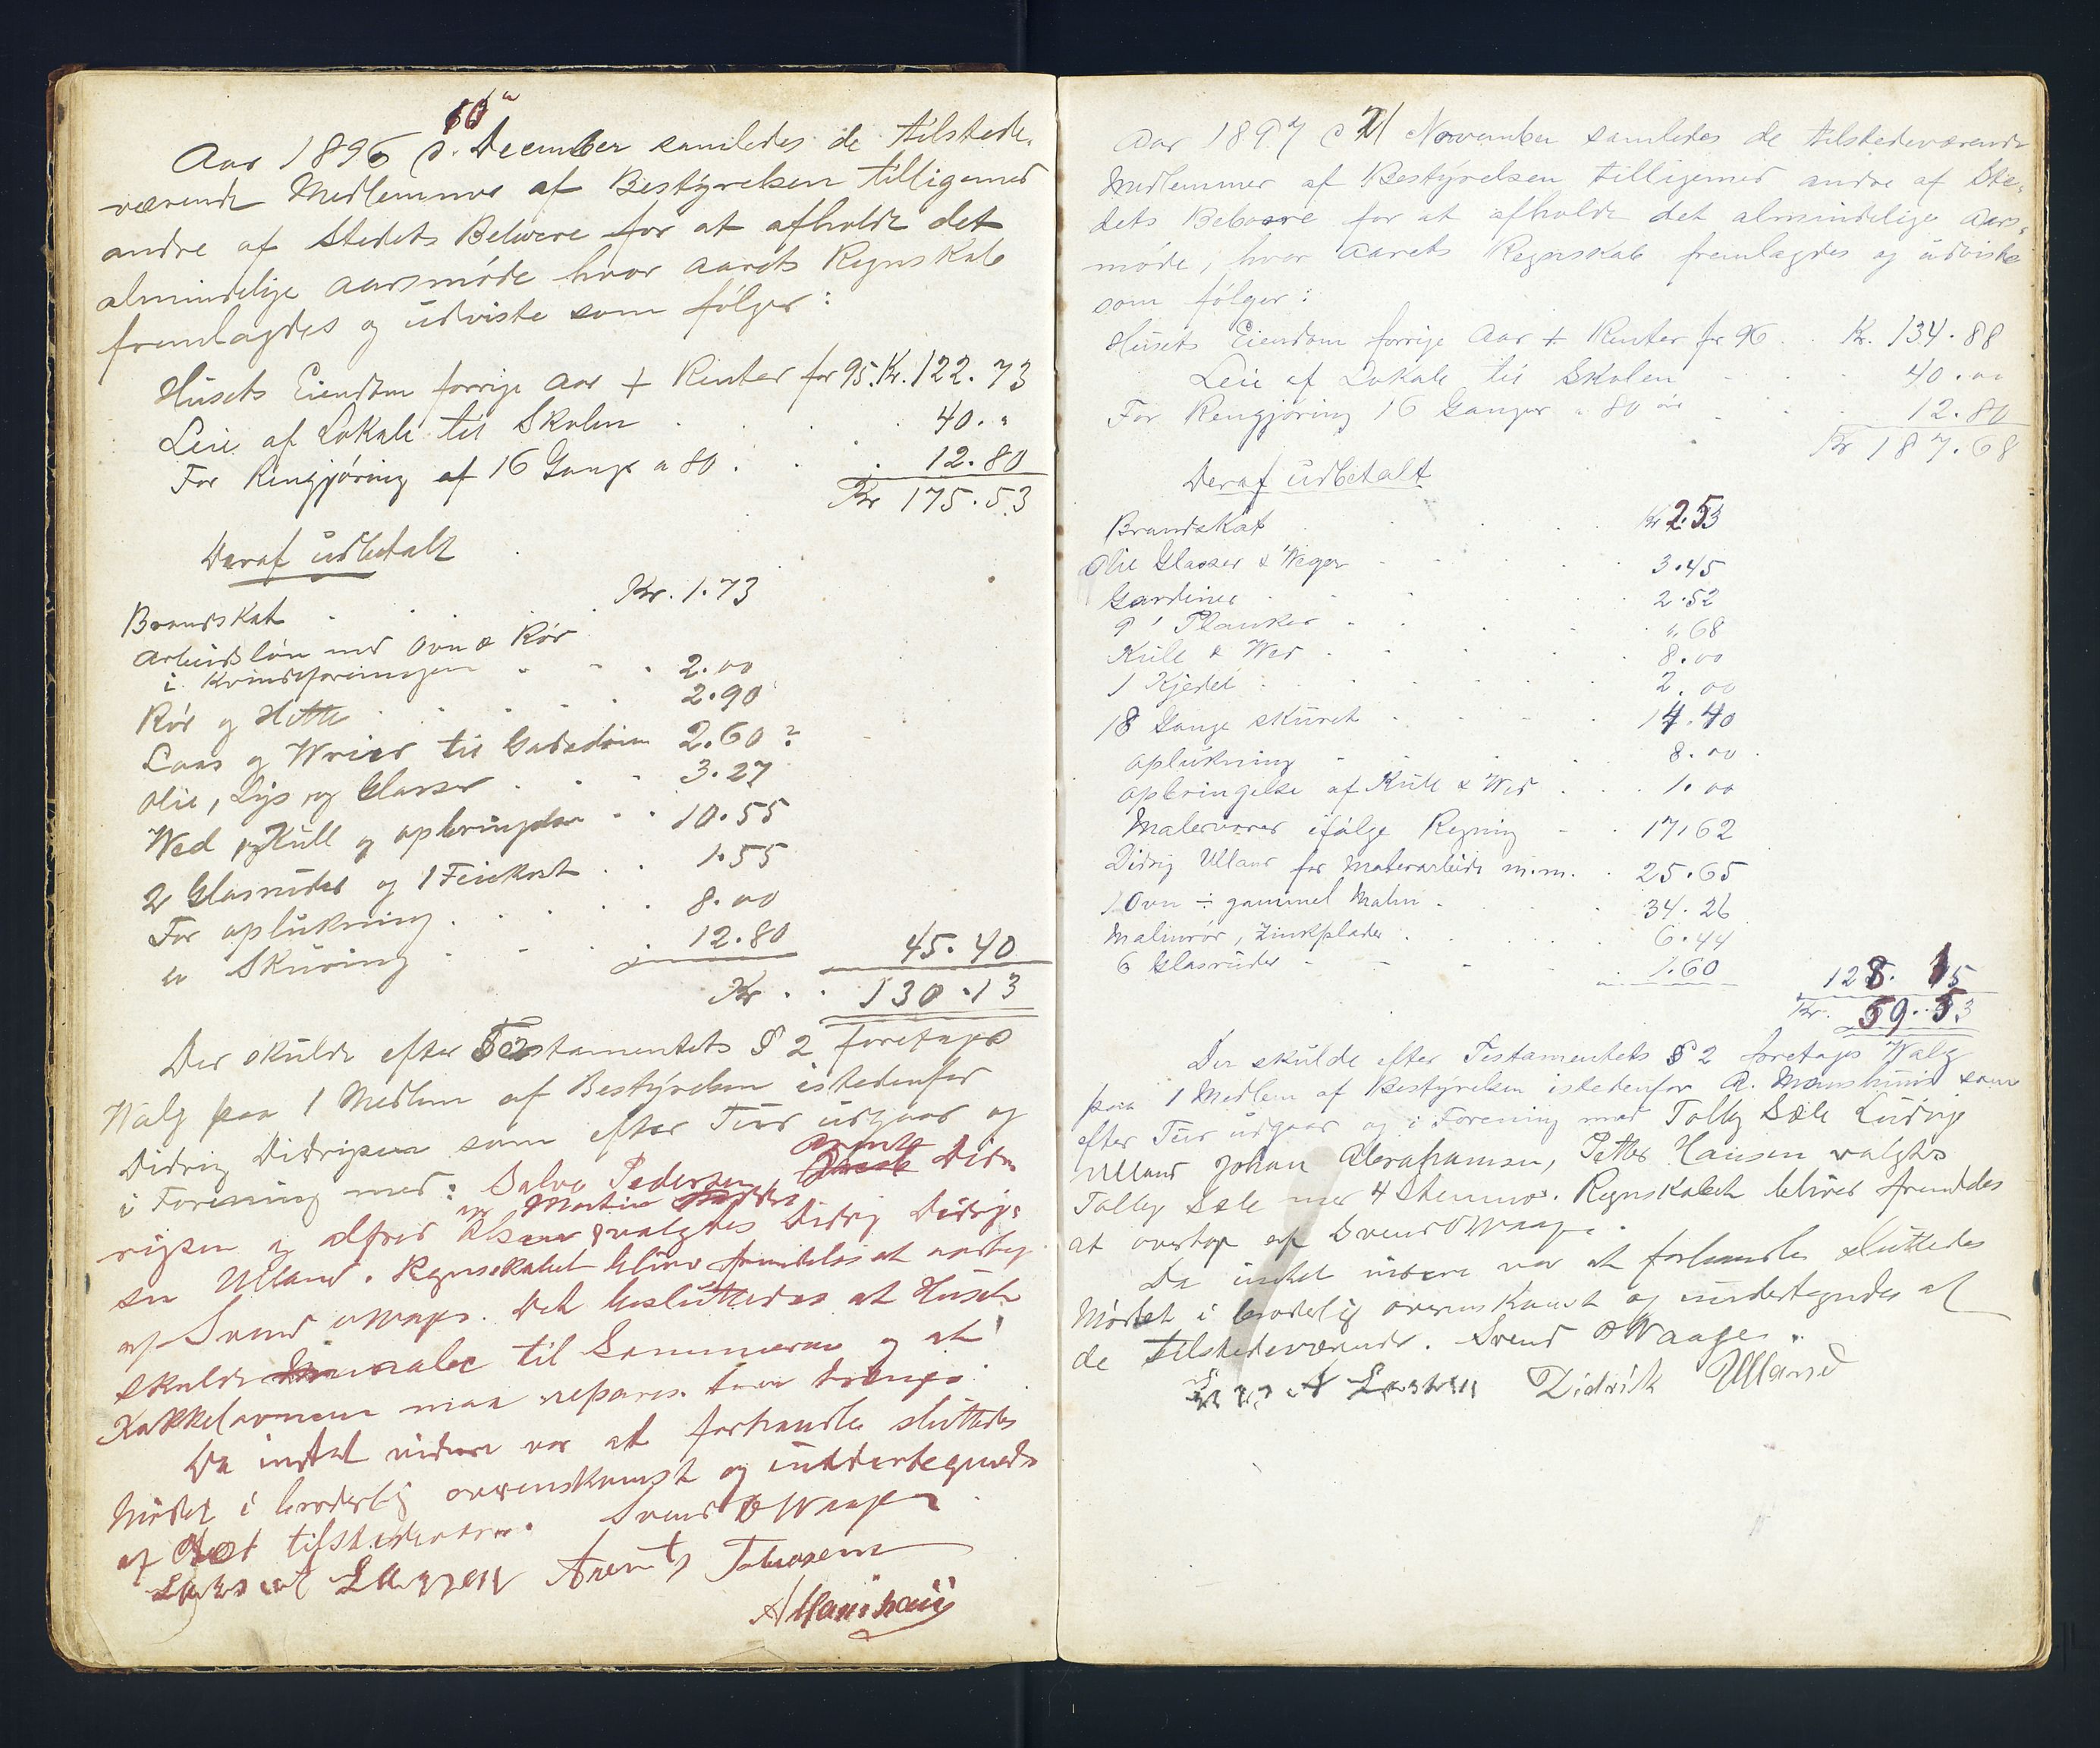 Aar 1896 d. December samledes de tilstede-
værende Medlemmer af Bestyrelsen tilligemed
andre af Stedets Beboere for at afholde det
almindelige Aarsmöde hvor Aarets Regnskab
fremlagdes og udviste som fölger:
Husets Eiendom forrige Aar + Renter for 95. Kr. 122.73
Leie af Lokale til Skolen 40.„
For Rengjöring af 16 Gange a 80 . 12.80
Kr 175.53
Deraf udbetalt
Brandskat Kr. 1.73
Arbeidslön med Ovn & Rör
i Kvindeforeningen 2.00
Rör og Hette 2.90
Laas og Wrier til Gadedören 2.60
Olie, Lys og Glasser 3.27
Wed og Kull og opbringelse 10.55
2 Glasruder og 1 Feiekost 1.55
For oplukning 8.00
„ Skuring 12.80 45.40
Kr . . 130.13
Der skulde efter Testamentets § 2 foretages
Walg paa 1 Medlem af Bestyrelsen istedenfor
Didrig Didrigsen som efter Tur udgaar og
i Forening med: Salve Pedersen, Didr-
Martin
rigsen og Alfred Olsen valgtes Didrig Didrig-
sen Ulland. Regnskabet bliver fremdeles at
af Svend OWaage. Det besluttedes at Huset
skulde males til Sommeren og at
Kakkelovnene maa repares. trænges
Da intet videre var at forhandle sluttedes
Mödet i broderlig overenskomst og undertegnedes
af de tilstedeværende. Svend OWaage
Larsen Arent Tobiasen
A Manshaus
Aar 1897 d 21 November samledes de tilstedeværende
Medlemmer af Bestyrelsen tilligemed andre af Ste-
dets Beboere for at afholde det almindelige Aars-
möde, hvor Aarets Regnskab fremlagdes og udviste
som fölger:
Husets Eiendom forrige Aar + Renter for 96 . . Kr. 134.88
Leie af Lokale til Skolen 40.00
For Rengjöring 16 Ganger a 80 öre 12.80
Kr 187.68
Deraf udbetalt
Brandskat Kr 2.53
Olie Glasser & Weger 3.45
Gardiner 2.52
9' Planker „.68
Kull & Wed 8.00
1 Kjedel 2.00
18 Gange skuret 14.40
oplukning 8.00
opbringelse af Kull & Wed 1.00
Malervarer ifölge Regning 17.62
Didrig Ulland for Malerarbeide m.m. 25.65
1 Ovn ÷ gammel Malm 34.26
Malmrör, Zinkplader 6.44
6 Glasruder 1.60 128.15
Kr. 59.53
Der skulde efter Testamentets § 2 foretages Walg
paa 1 Medlem af Bestyrelsen istedenfor A. Manshaus som
efter Tur udgaar og i Forening med Tolley Sæle Ludvig
Ulland Johan Abrahamsen, Petter Hansen valgtes
Tolley Sæle med 4 Stemmer. Regnskabet bliver fremdeles
at overtage af Svend OWaage.
Da intet videre var at forhandle sluttedes
Mödet i broderlig overenskomst og undertegnedes af
de tilstedeværende. Svend OWaage.
A Larsen Didrik Ulland